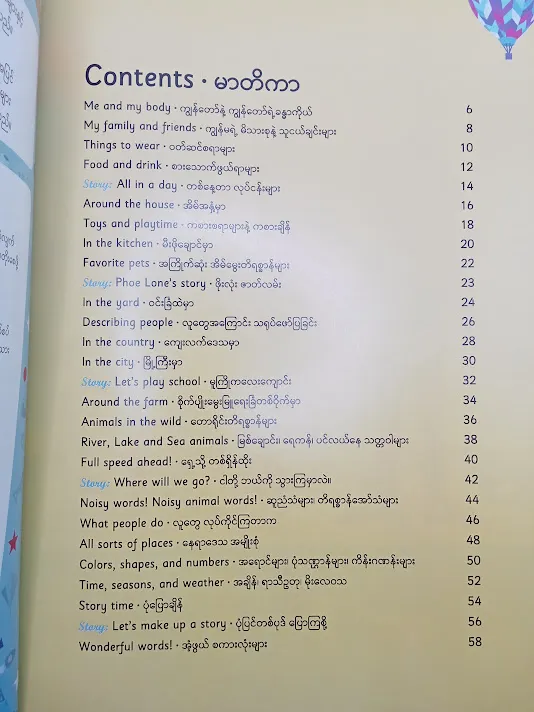 Contents · မာတိကာ
Me and my body · ကျွန်တော်နဲ့ ကျွန်တော်ရဲ့ခန္ဓာကိုယ် 6
My family and friends · ကျွန်မရဲ့ မိသားစုနဲ့ သူငယ်ချင်းများ 8
Things to wear · ဝတ်ဆင်စရာများ 10
Food and drink · စားသောက်ဖွယ်ရာများ 12
Story: All in a day · တစ်နေ့တာ လုပ်ငန်းများ 14
Around the house · အိမ်အနှံ့မှာ 16
Toys and playtime · ကစားစရာများနဲ့ ကစားချိန် 18
In the kitchen · မီးဖိုချောင်မှာ 20
Favorite pets · အကြိုက်ဆုံး အိမ်မွေးတိရစ္ဆာန်များ 22
Story: Phoe Lone's story · ဖိုးလုံး ဇာတ်လမ်း 23
In the yard · ဝင်းခြံထဲမှာ 24
Describing people · လူတွေအကြောင်း သရုပ်ဖော်ပြခြင်း 26
In the country · ကျေးလက်ဒေသမှာ 28
In the city · မြို့ကြီးမှာ 30
Story: Let's play school · မူကြိုကလေးကျောင်း 32
Around the farm · စိုက်ပျိုးမွေးမြူရေးခြံတစ်ဝိုက်မှာ 34
Animals in the wild · တောရိုင်းတိရစ္ဆာန်များ 36
River, Lake and Sea animals · မြစ်ချောင်း၊ ရေကန်၊ ပင်လယ်နေ သတ္တဝါများ 38
Full speed ahead! · ရှေ့သို့ တစ်ရှိန်ထိုး 40
Story: Where will we go? · ငါတို့ ဘယ်ကို သွားကြမှာလဲ။ 42
Noisy words! Noisy animal words! · ဆူညံသံများ၊ တိရစ္ဆာန်အော်သံများ 44
What people do · လူတွေ လုပ်ကိုင်ကြတာက 46
All sorts of places · နေရာဒေသ အမျိုးစုံ 48
Colors, shapes, and numbers · အရောင်များ၊ ပုံသဏ္ဌာန်များ၊ ကိန်းဂဏန်းများ 50
Time, seasons, and weather · အချိန်၊ ရာသီဥတု၊ မိုးလေဝသ 52
Story time · ပုံပြောချိန် 54
Story: Let's make up a story · ပုံပြင်တစ်ပုဒ် ပြောကြစို့ 56
Wonderful words! · အံ့ဖွယ် စကားလုံးများ 58